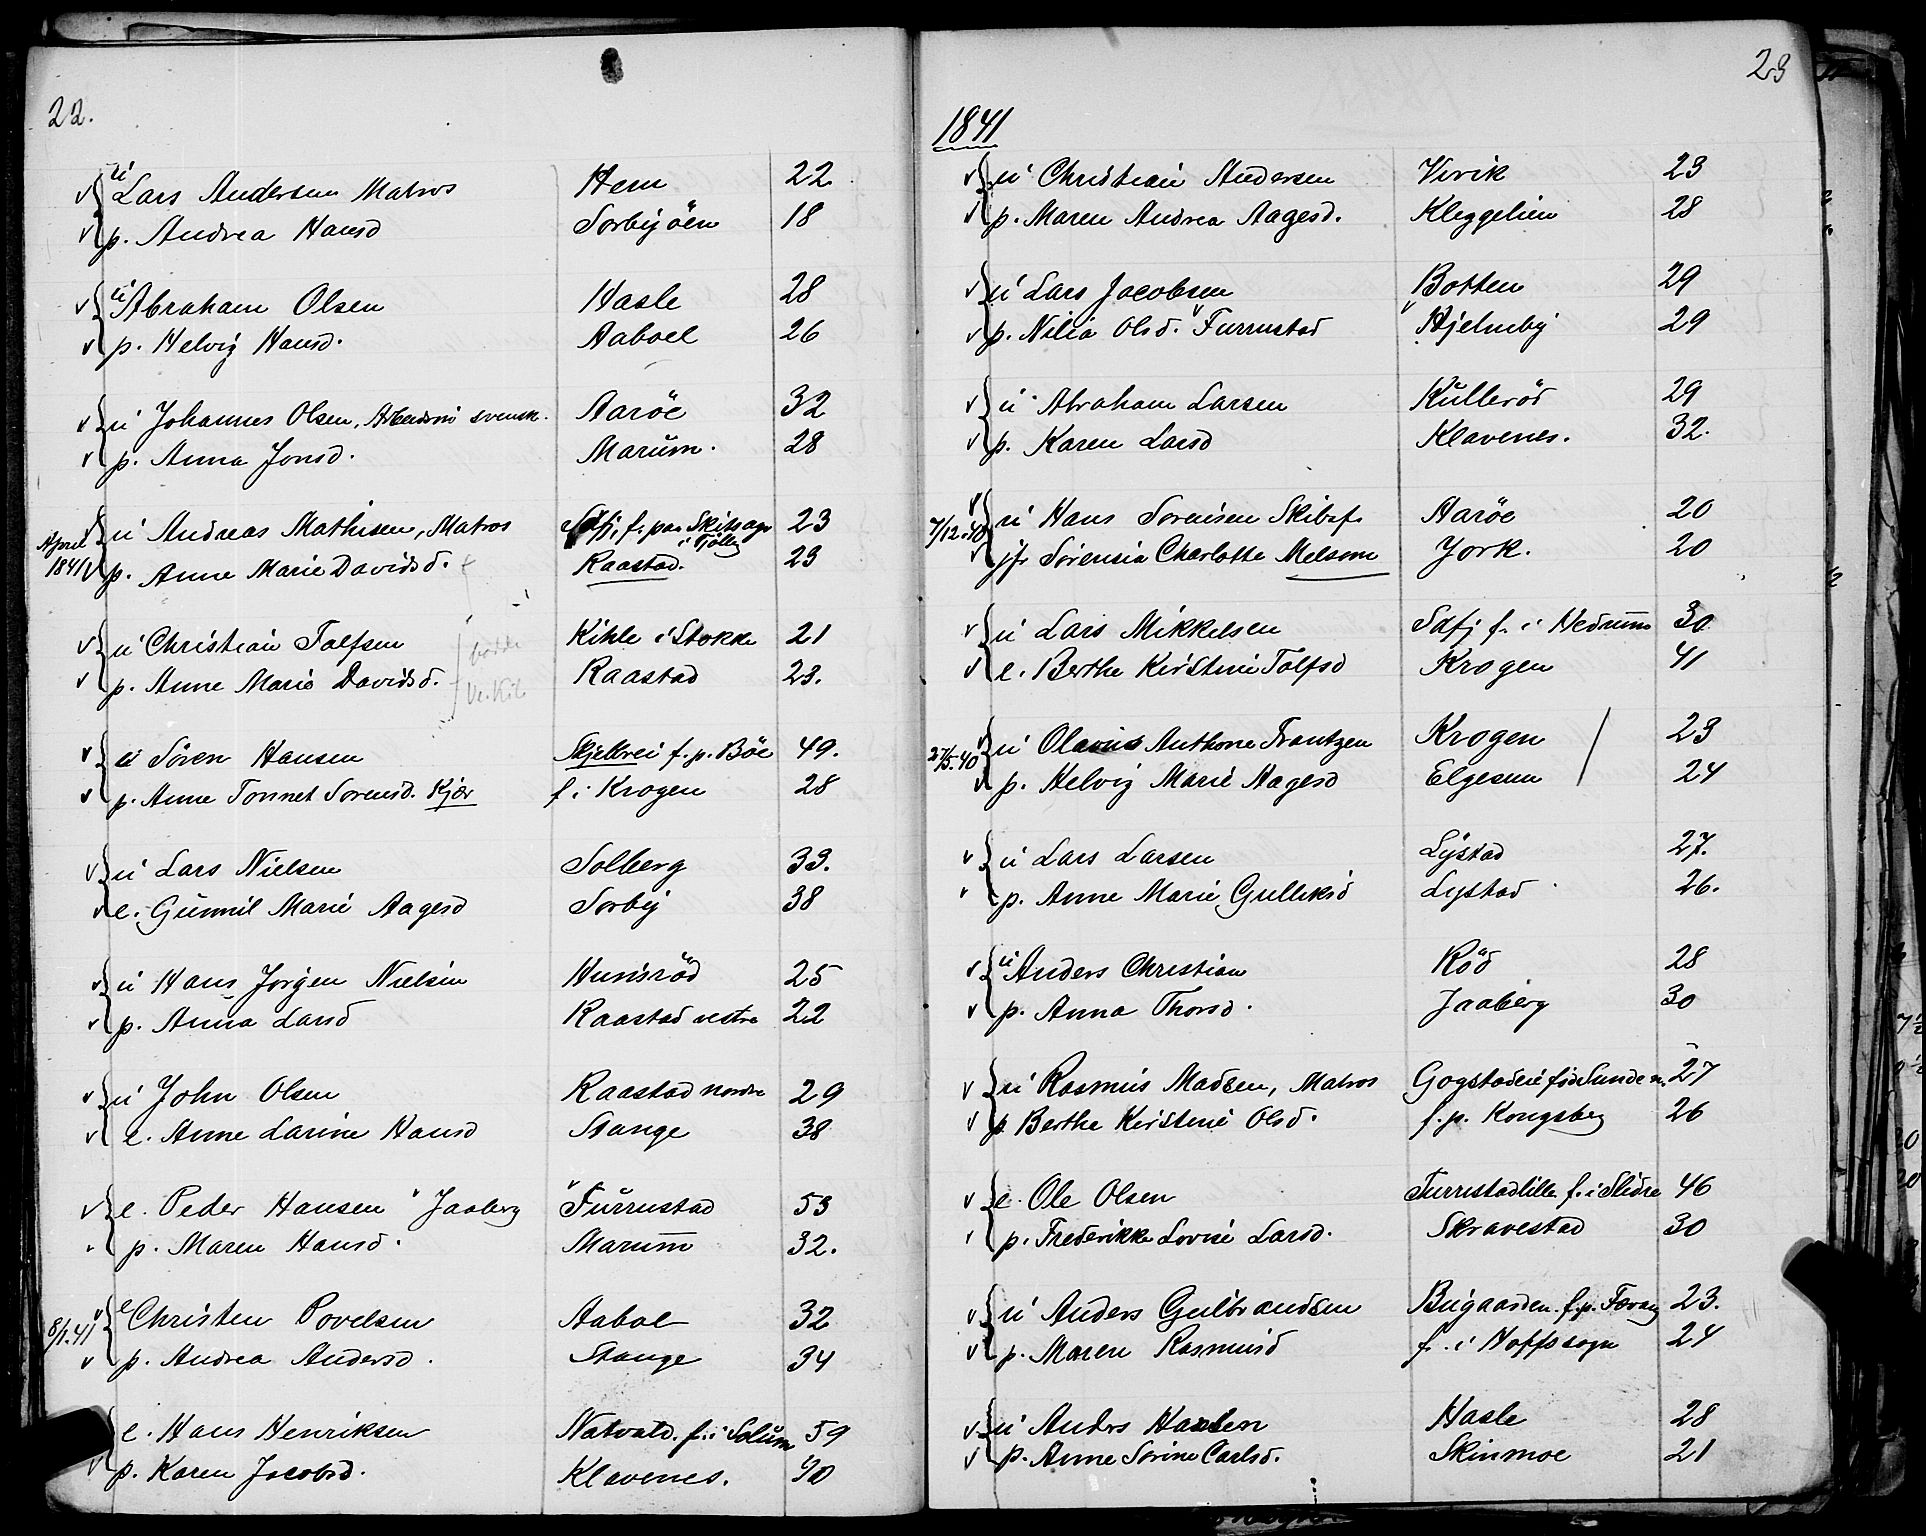 22.
u Lars Andersen Matros Hem 22
p. Andrea Hansd Sorbyöen 18
u Abraham Olsen Hasle 28
p. Helvig Hansd. Aaboel 26
u Johannes Olsen, svensk. Aaröe 32
p. Anna Jonsd. Marum. 28
April u Andreas Mathisen, Matros f. paa 23
i Tjölling
1841 p. Anne Marie Davidsd. Raastad. 23
u Christian Tolfsen Kihle i Stokke 21
p. Anne Marie Davidsd. Raastad 23.
u Sören Hansen f. p. Böe 49.
p. Anne Tonnet Sorensd. Kjær f. i Krogen 28
u Lars Nielsen Solberg 33.
e. Gunnil Marie Aagesd Sorby 38
u Hans Jorgen Nielsen Hunsröd 25
p. Anna Larsd Raastad vestre 22
u John Olsen Raastad nordre 29
e. Anne Larine Hansd Stange 38
e. Peder Hansen Jaaberg Furrustad 53
p. Maren Hansd. Marum 32.
8/1.41 e Christen Povelsen Aabol 32
p. Andrea Andersd. Stange 34
e. Hans Henriksen Natvald. f. i Solum 59
p. Karen Jacobsd. Klavenes. 40
23
1841
u Christian Andersen Virik 23
p. Maren Andrea Aagesd. Kleggelien 28
u Lars Jacobsen Botten 29
p. Nilia Olsd. Furrustad Hjelmby 29
u Abraham Larsen Kulleröd 29
p. Karen Larsd Klavenes. 32.
7/12.40 u Hans Sorensen Skibsf. Aaröe 20
jfr Sörensia Charlotte Melsom York. 20
u Lars Mikkelsen Sdfj f. i Hedrum 30
e. Berthe Kirstine Tolfsd Krogen 41
27/5.40 u Olavus Anthone Frantzen Krogen 23
p. Helvig Marie Aagesd Elgesem 24
u Lars Larsen Lystad 27.
p. Anne Marie Gulliksd Lystad 26.
u Anders Christian Röd 28
p. Anna Thorsd. Jaaberg 30
u Rasmus Madsen, Matros Gogstadeie 27
p Berthe Kirstine Olsd. f. p. Kongsberg 26
e. Ole Olsen Furrustadlille f. i Slidre 46
p. Frederikke Lovise Larsd. Skravestad 30
u Anders Gulbrandsen Bugaarden. f. p. 23.
p. Maren Rasmusd f. i 24
u Anders Hansen Hasle 28
p. Anne Sorine Carlsd. Skinmoe 21